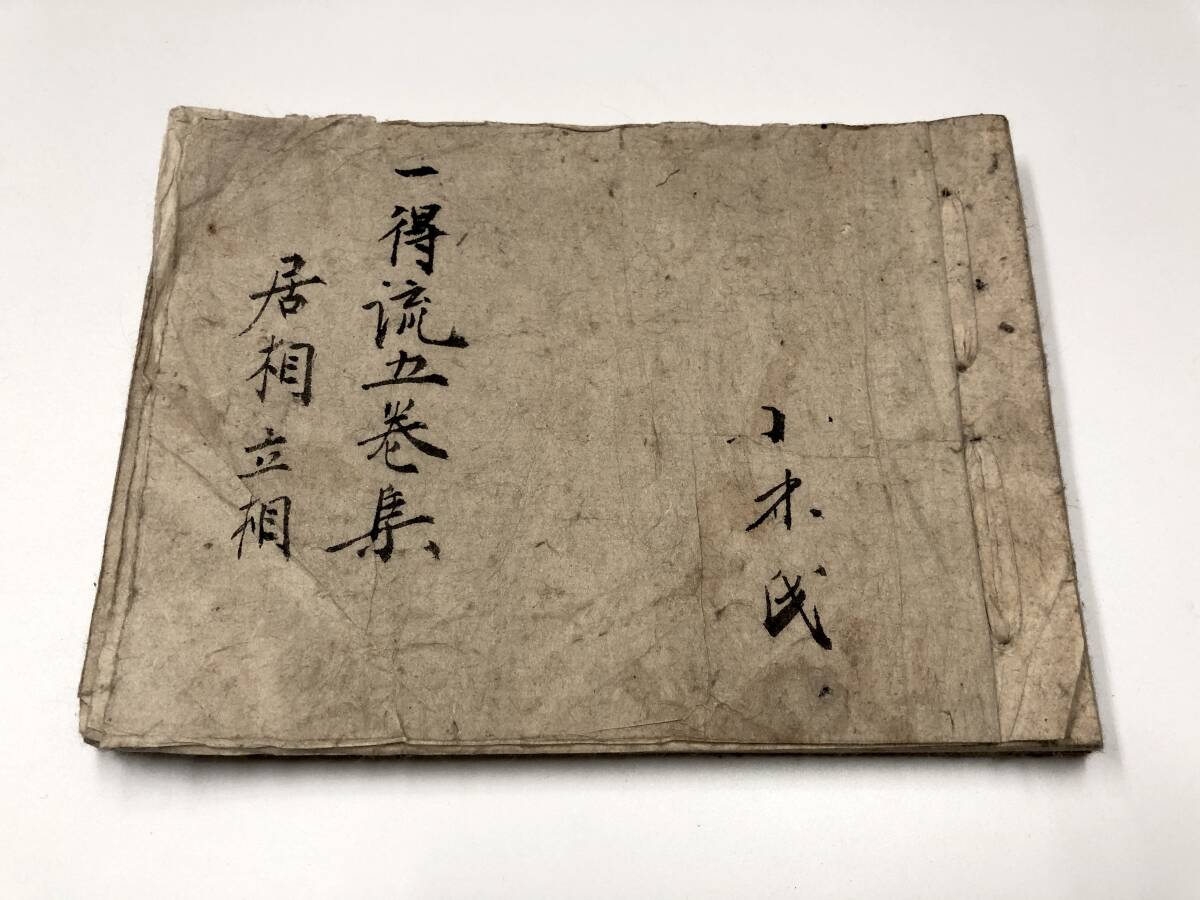 小木氏
一得流五巻集
居相立相